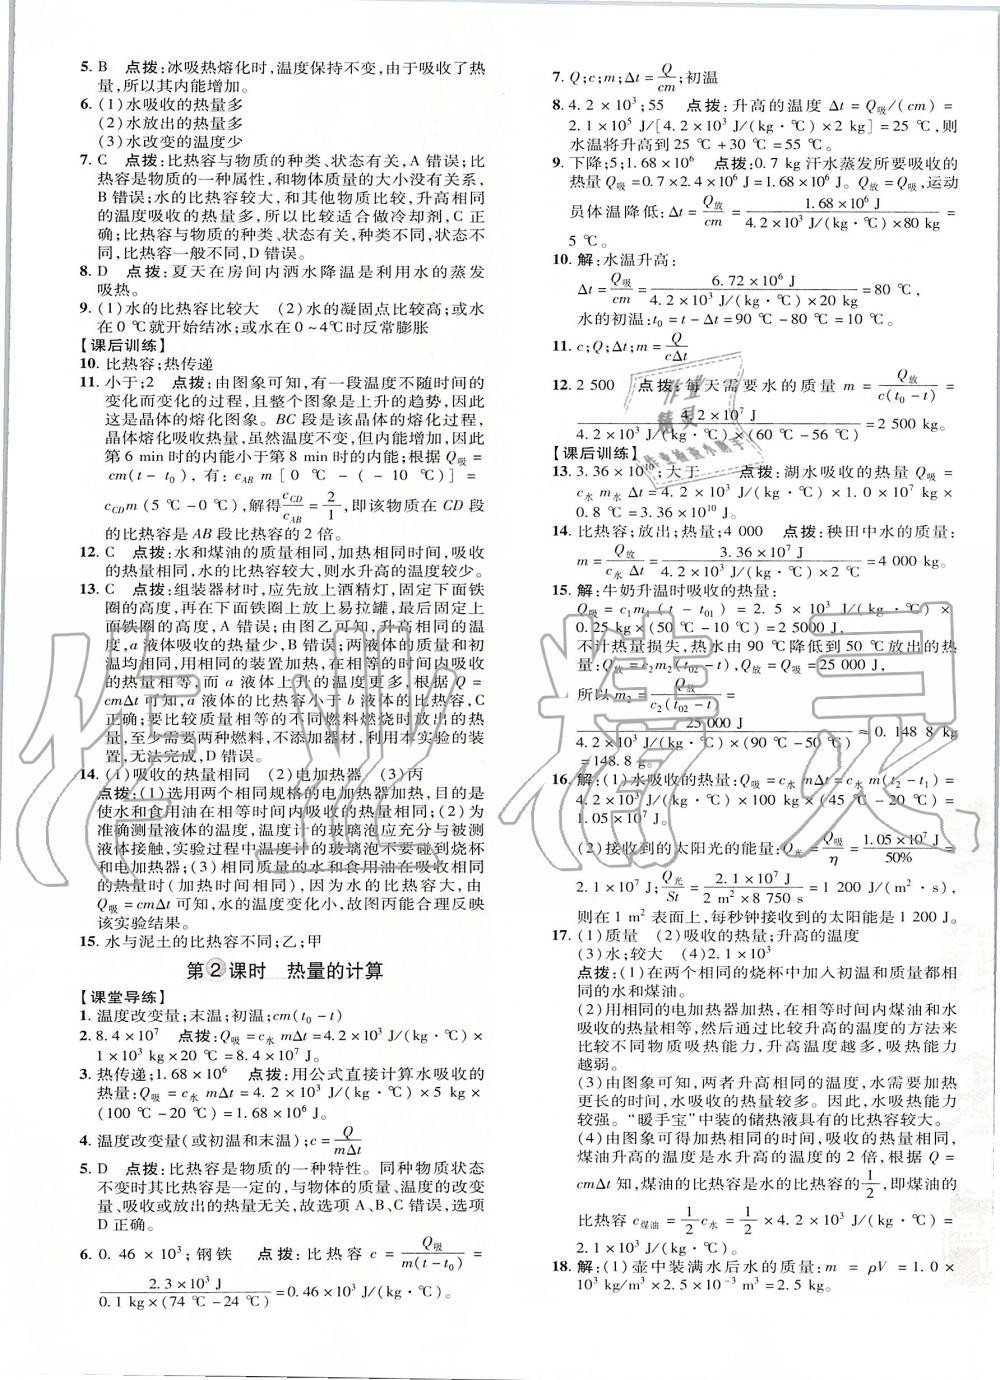 5. B　点拨:冰吸热熔化时,温度保持不变,由于吸收了热
量,所以其内能增加。
6. (1)水吸收的热量多
(2)水放出的热量多
(3)水改变的温度少
7. C　点拨:比热容与物质的种类、状态有关,A 错误;比
热容是物质的一种属性,和物体质量的大小没有关系,
B 错误;水的比热容较大,和其他物质比较,升高相同
的温度吸收的热量多,所以比较适合做冷却剂,C 正
确;比热容与物质的种类、状态有关,种类不同,状态不
同,比热容一般不同,D 错误。
8. D　点拨:夏天在房间内洒水降温是利用水的蒸发
吸热。
9. (1)水的比热容比较大　(2)水的凝固点比较高;或水
在 0 ℃就开始结冰;或水在 0~4℃时反常膨胀
【课后训练】
10. 比热容;热传递
11. 小于;2　点拨:由图象可知,有一段温度不随时间的
变化而变化的过程,且整个图象是上升的趋势,因此
这是晶体的熔化图象。BC 段是该晶体的熔化过程,
晶体熔化吸收热量,虽然温度不变,但内能增加,因此
第 6 min 时的内能小于第 8 min 时的内能;根据 Q吸 =
cm(t − t₀),有: cAB m [0 ℃ − (− 10 ℃)] =
cCD m (5 ℃ −0 ℃),解得 cCD/cAB = 2/1,即该物质在 CD 段
的比热容是 AB 段比热容的 2 倍。
12. C　点拨:水和煤油的质量相同,加热相同时间,吸收
的热量相同,水的比热容较大,则水升高的温度较少。
13. C　点拨:组装器材时,应先放上酒精灯,固定下面铁
圈的高度,再在下面铁圈上放上易拉罐,最后固定上
面铁圈的高度,A 错误;由图乙可知,升高相同的温
度,a 液体吸收的热量少,B 错误;两液体的质量和初
温均相同,用相同的装置加热,在相等的时间内吸收
的热量相等,而 a 液体上升的温度更多,根据 Q =
cmΔt 可知,a 液体的比热容小于 b 液体的比热容,C
正确;要比较质量相等的不同燃料燃烧时放出的热
量,至少需要两种燃料,不添加器材,利用本实验的装
置,无法完成,D 错误。
14. (1)吸收的热量相同　(2)电加热器　(3)丙
点拨:(1)选用两个相同规格的电加热器加热,目的是
使水和食用油在相等时间内吸收的热量相同;(2)为
准确测量液体的温度,温度计的玻璃泡应充分与被测
液体接触,实验过程中温度计的玻璃泡不要碰到烧杯
和电加热器;(3)相同质量的水和食用油在吸收相同
的热量时(加热时间相同),因为水的比热容大,由
Q吸 = cmΔt 可知,水的温度变化小,故图丙能合理反映
该实验结果。
15. 水与泥土的比热容不同;乙;甲
第 2 课时　热量的计算
【课堂导练】
1. 温度改变量;末温;初温;cm(t₀ − t)
2. 8.4 × 10⁷　点拨:Q吸 = c水 mΔt = 4.2 × 10³ J/(kg · ℃) ×
1×10³ kg×20 ℃=8.4×10⁷ J。
3. 热传递;1.68 ×10⁶　点拨:用公式直接计算水吸收的
热量:Q吸 = c水 mΔt = 4.2 × 10³ J/(kg · ℃) × 5 kg ×
(100 ℃ −20 ℃) = 1.68 × 10⁶ J。
4. 温度改变量(或初温和末温);c = Q/mΔt
5. D　点拨:比热容是物质的一种特性。同种物质状态
不变时其比热容是一定的,与物体的质量、温度的改变
量、吸收或放出的热量无关,故选项 A、B、C 错误,选项
D 正确。
6. 0.46 × 10³;钢铁　点拨:比热容 c = Q吸/m(t − t₀) =
2.3×10³ J/0.1 kg×(74 ℃−24 ℃) = 0.46×10³ J/(kg · ℃)。
7. Q;c;m;Δt = Q/cm;初温
8. 4.2 × 10³;55　点拨:升高的温度 Δt = Q吸/(cm) =
2.1×10⁵ J/[4.2×10³ J/(kg · ℃) ×2 kg] = 25 ℃,则
水温将升高到 25 ℃ +30 ℃ =55 ℃。
9. 下降;5;1.68×10⁶　点拨:0.7 kg 汗水蒸发所要吸收的
热量 Q吸=0.7×2.4×10⁶ J=1.68×10⁶ J。Q放=Q吸,运动
员体温降低:Δt = Q放/cm = 1.68×10⁶ J/4.2×10³ J/(kg · ℃)×80 kg =
5 ℃。
10. 解:水温升高:
Δt = Q吸/cm = 6.72×10⁶ J/4.2×10³ J/(kg · ℃)×20 kg = 80 ℃,
水的初温:t₀ = t − Δt = 90 ℃ −80 ℃ =10 ℃。
11. c;Q;Δt;m = Q/cΔt
12. 2 500　点拨:每天需要水的质量 m = Q放/c(t₀ − t) =
4.2×10⁷ J/4.2×10³ J/(kg · ℃)×(60 ℃ −56 ℃) = 2 500 kg。
【课后训练】
13. 3.36×10¹⁰;大于　点拨:湖水吸收的热量 Q吸 =
c水 m水 Δt = 4.2 × 10³ J/(kg · ℃) × 1.0 × 10⁷ kg ×
0.8 ℃=3.36×10¹⁰ J。
14. 比热容;放出;热量;4 000　点拨:秧田中水的质量:
m = Q放/c水 Δt = 3.36×10⁷ J/4.2×10³ J/(kg · ℃)×2 ℃ = 4 000 kg。
15. 解:牛奶升温时吸收的热量:
Q吸 = c₁m₁(t − t₀₁) = 2.5 × 10³ J/(kg · ℃) ×
0.25 kg×(50 ℃ −10 ℃) =2 5000 J,
不计热量损失,热水由 90 ℃降低到 50 ℃放出的热
量:Q放 = c₂m₂(t₀₂ − t),Q放 = Q吸 = 25 000 J,
所以 m₂ = Q放/c₂(t₀₂ − t) =
25 000 J/4.2×10³ J/(kg · ℃)×(90 ℃ −50 ℃) ≈ 0.148 8 kg
=148.8 g。
16. 解:(1)水吸收的热量:Q吸 = c水 mΔt = c水 m(t₂ − t₁) =
4.2×10³ J/(kg · ℃) ×100 kg×(45 ℃ −20 ℃) =
1.05×10⁷ J。
(2)接收到的太阳光的能量:Q光 = Q吸/η = 1.05×10⁷ J/50% =
2.1×10⁷ J, Q光/St = 2.1×10⁷ J/2 m²×8 750 s = 1 200 J/(m² · s),
则在 1 m² 表面上,每秒钟接收的太阳能是 1 200 J。
17. (1)质量　(2)吸收的热量;升高的温度
(3)水;较大　(4)2.1×10³
点拨:(1)在两个相同的烧杯中加入初温和质量都相
同的水和煤油。
(2)用相同的电加热器加热,在相等时间内煤油和水
吸收的热量相等,然后通过比较升高的温度的方法来
比较不同物质吸热能力,升高温度越多,吸热能力
越弱。
(3)由图象可知,两者升高相同的温度,水需要加热
更长的时间,水吸收的热量较多。因此,水吸热能力
较强。“暖手宝”中装的储热液具有的比热容较大。
(4)由图象可得加热相同的时间,吸收的热量相同,
煤油升高的温度是水升高的温度的 2 倍,根据 Q =
cmΔt 知,煤油的比热容是水的比热容的 1/2,即煤油的
比热容 c煤油 = 1/2 c水 = 1/2 × 4.2 × 10³ J/(kg · ℃) =
2.1×10³ J/(kg · ℃)。
18. 解:(1)壶中装满水后水的质量:m = ρV = 1.0 ×
10³ kg/m³ ×2.5×10⁻³ m³=2.5 kg。
作业精灵
作业
精灵